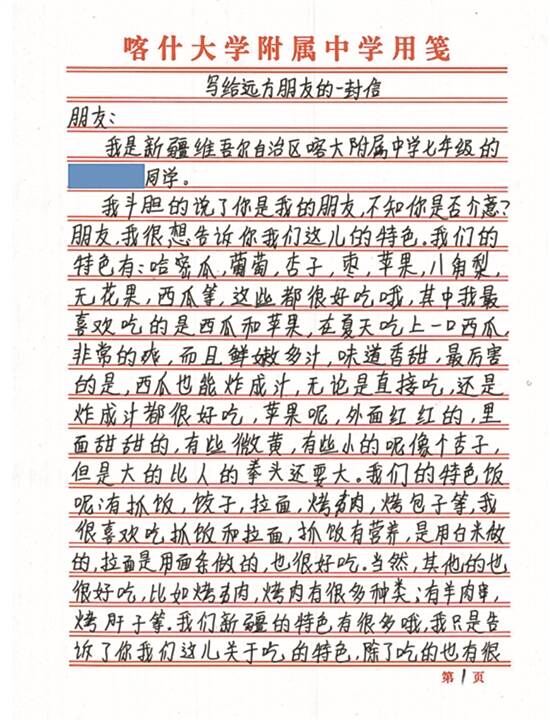 喀什大学附属中学用笺
写给远方朋友的一封信
朋友：
我是新疆维吾尔自治区喀大附属中学七年级的
同学。
我斗胆的说了你是我的朋友,不知你是否介意?
朋友,我很想告诉你我们这儿的特色。我们的
特色有：哈密瓜,葡萄,杏子,枣,苹果,八角梨,
无花果,西瓜等,这些都很好吃哦,其中我最
喜欢吃的是西瓜和苹果,在夏天吃上一口西瓜,
非常的爽,而且鲜嫩多汁,味道香甜,最厉害
的是,西瓜也能炸成汁,无论是直接吃,还是
炸成汁都很好吃,苹果呢,外面红红的,里
面甜甜的,有些微黄,有些小的呢像个杏子,
但是大的比人的拳头还要大。我们的特色饭
呢:有抓饭,饺子,拉面,烤肉,烤包子等,我
很喜欢吃抓饭和拉面,抓饭有营养,是用白米做
的,拉面是用面条做的,也很好吃。当然,其他的也
很好吃,比如烤肉,烤肉有很多种类:有羊肉串,
烤肝子等。我们新疆的特色有很多哦,我只是告
诉了你我们这儿关于吃的特色,除了吃的也有很
第1页